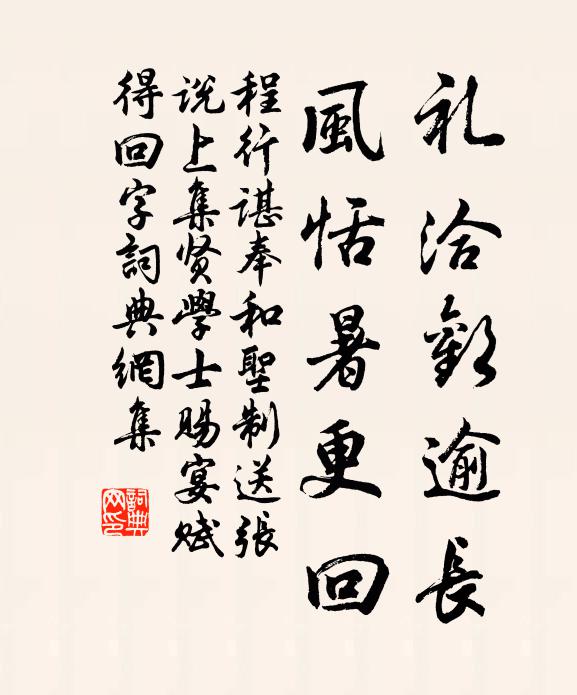 礼洽歡逾長
風恬暑更回
程行谌奉和聖制送張
说上集贤學士賜宴赋
得回字詞典網集
詞典网印